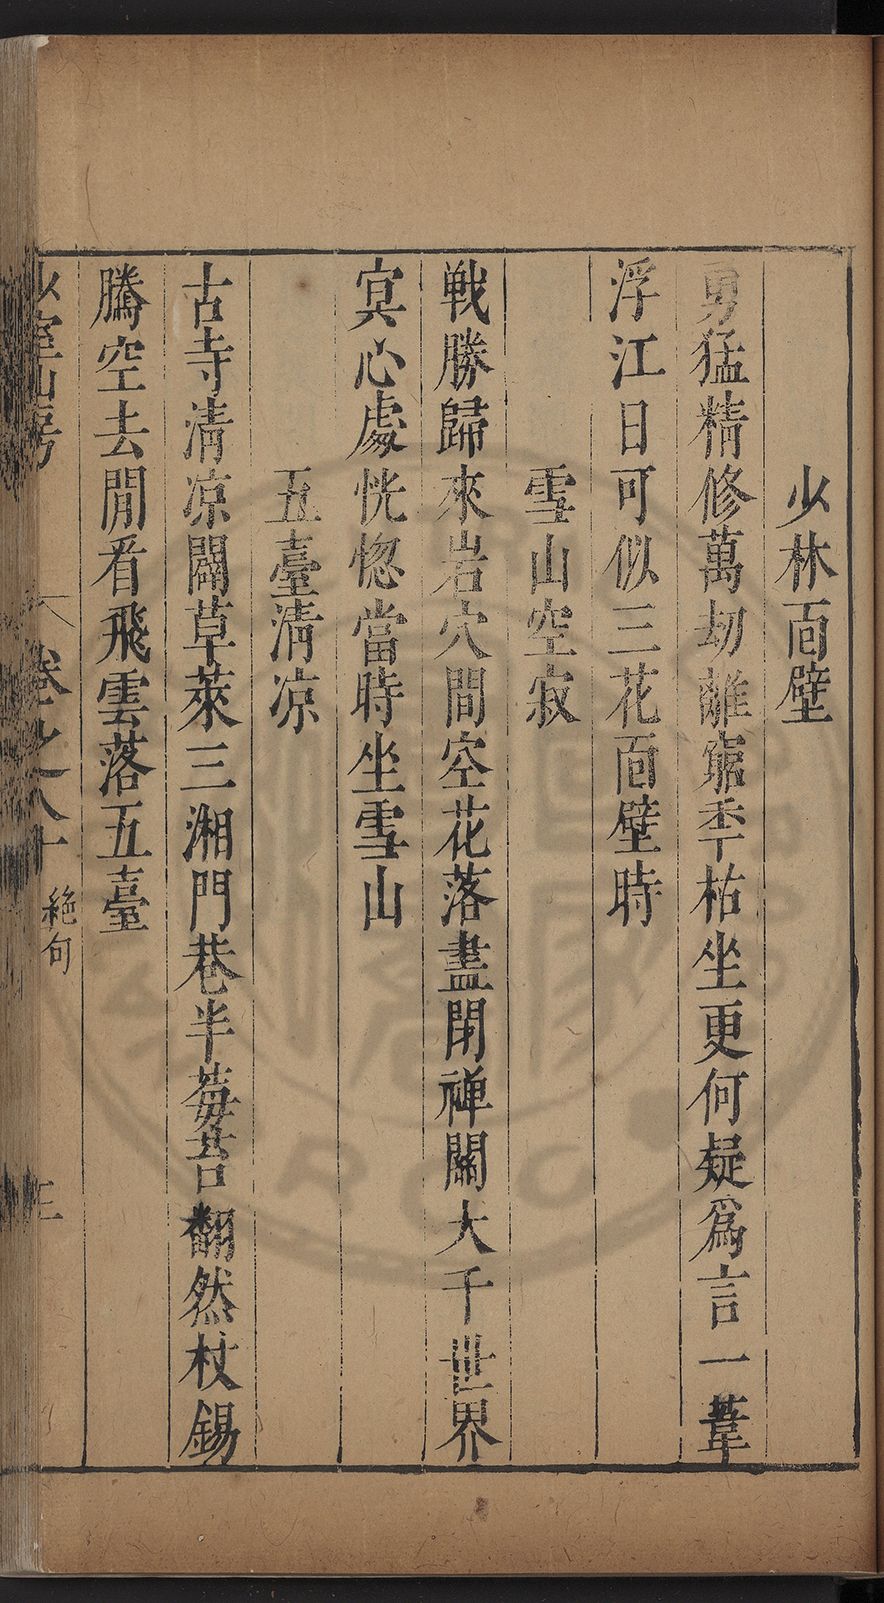 少林面壁
勇猛精修萬刼離窮年枯坐更何疑爲言一葦
浮江日可似三花面壁時
雪山空寂
戰勝歸來岩穴間空花落盡閉禪關大千世界
冥心處恍惚當時坐雪山
五臺清凉
古寺清凉闢草萊三湘門巷半莓苔翻然杖錫
騰空去閒看飛雲落五臺
少室山房 卷之八十 絶句 三